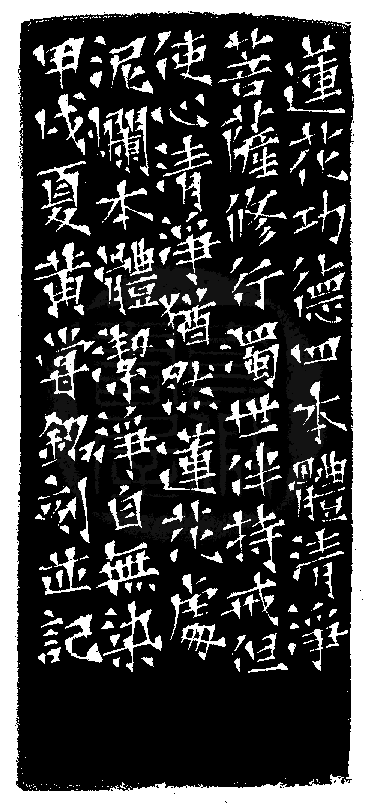 蓮花功德四本體清淨
菩薩修行濁世持戒但
使心清淨猶然蓮花處
泥爛本體潔淨自無染
甲戌夏黃嘗銘刻並記